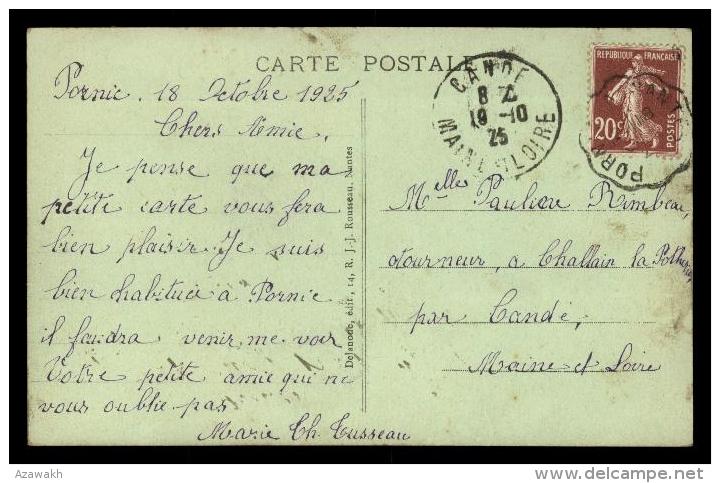 CARTE POSTALE
Pornic. 18 Octobre 1925
Chers Amie.
Je pense que ma
petite carte vous fera
bien plaisir. Je suis
bien habituée à Pornic
il faudra venir me voir
Votre petite amie qui ne
vous oublie pas
Marie Th. Tusseau
Delanoue, édit., 14, R. J.-J. Rousseau, Nantes
CANDE
8
19 -10
25
MAINE ET LOIRE
REPUBLIQUE FRANÇAISE
20c
POSTES
PORN
Melle Pauline Rimbeau,
tourneur, a Challain la Potherie,
par Candé,
Maine-et Loire
Azawakh
delcampe.net